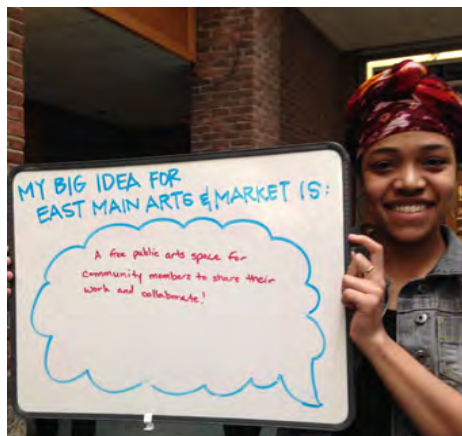 MY BIG IDEA FOR
EAST MAIN ARTS & MARKET IS:
A free public arts space for
community members to share their
work and collaborate!